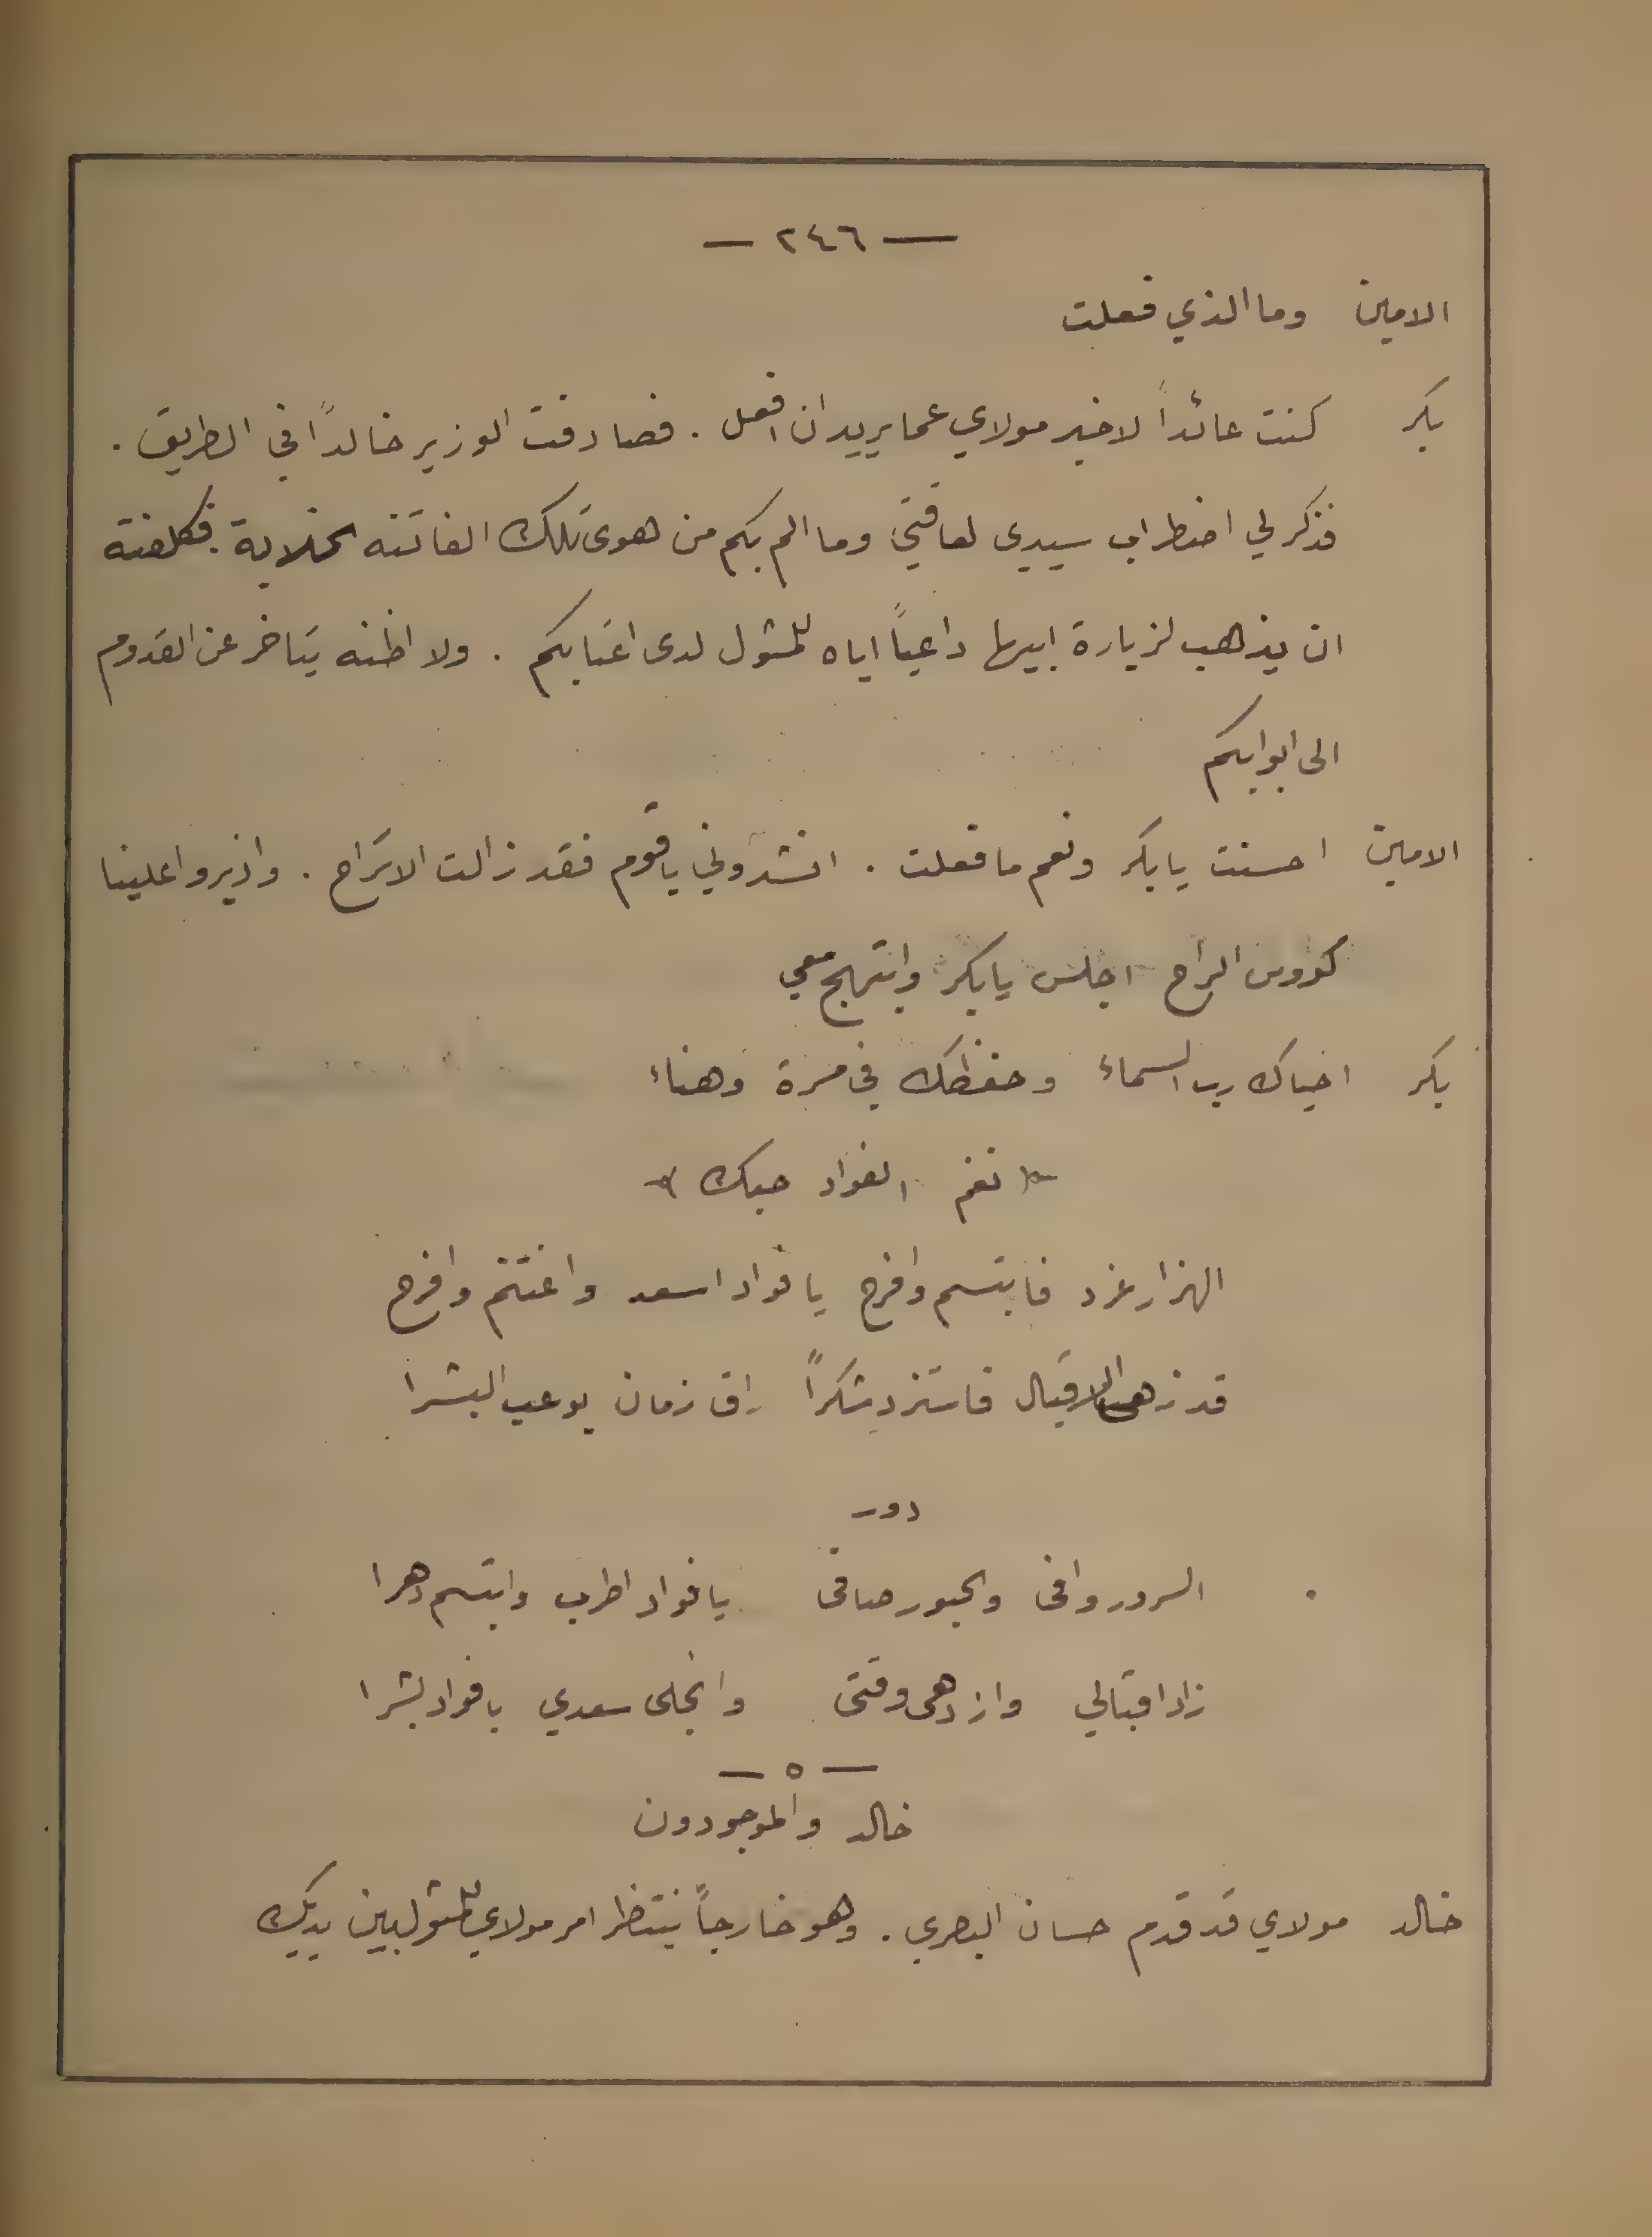 — ٢٤٦ —
الامين وما الذي فعلت
بكر كنت عائداً لاخبر مولاي عما يريد ان افعل . فصادفت الوزير خالداً في الطريق .
فذكر لي اضطراب سيدي لعاقتي وما الم بكم من هوى تلك الفاتنه الخلابة . فكلفته
ان يذهب لزيارة ابيها داعياً اياه للمثول لدى اعتابكم . ولا اظنه يتاخر عن القدوم
الى ابوابكم
الامين احسنت يا بكر ونعم ما فعلت . انشدوني يا قوم فقد زالت الاتراح . واديروا علينا
كووس الراح اجلس يا بكر وابتهج معي
بكر احياك رب السماء وحفظك في مسرة وهناء
نغم الفواد حبك
الهزار غرد فابتسم وافرح يا فواد اسعد واغتنم وافرح
قد زهى الاقبال فاستزد شكراً راق زمان يوعب البشرا
دور
السرور وافى والحبور صافى يا فواد اطرب وابتسم دهرا
زاد اقبالي وازدهى وقتى وانجلى سعدي يا فواد بشرا
— ٥ —
خالد والموجودون
خالد مولاي قد قدم حسان البصري . وهو خارجاً ينتظر امر مولاي للمثول بين يديك